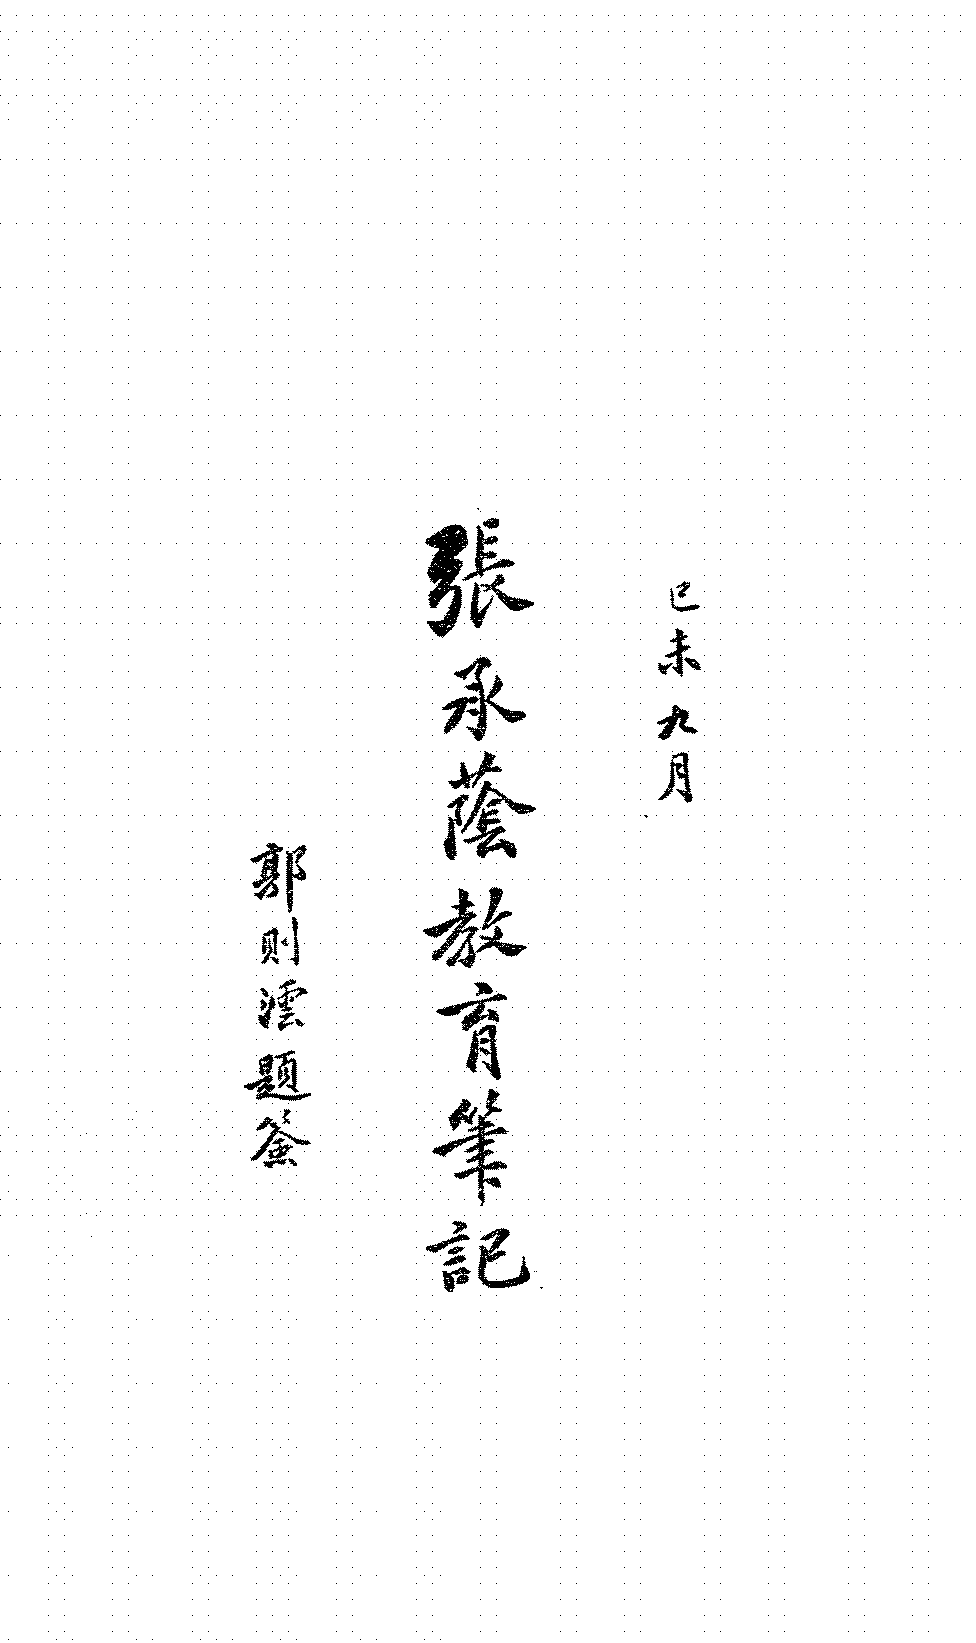 己未九月
張承蔭教育筆記
郭則澐題簽